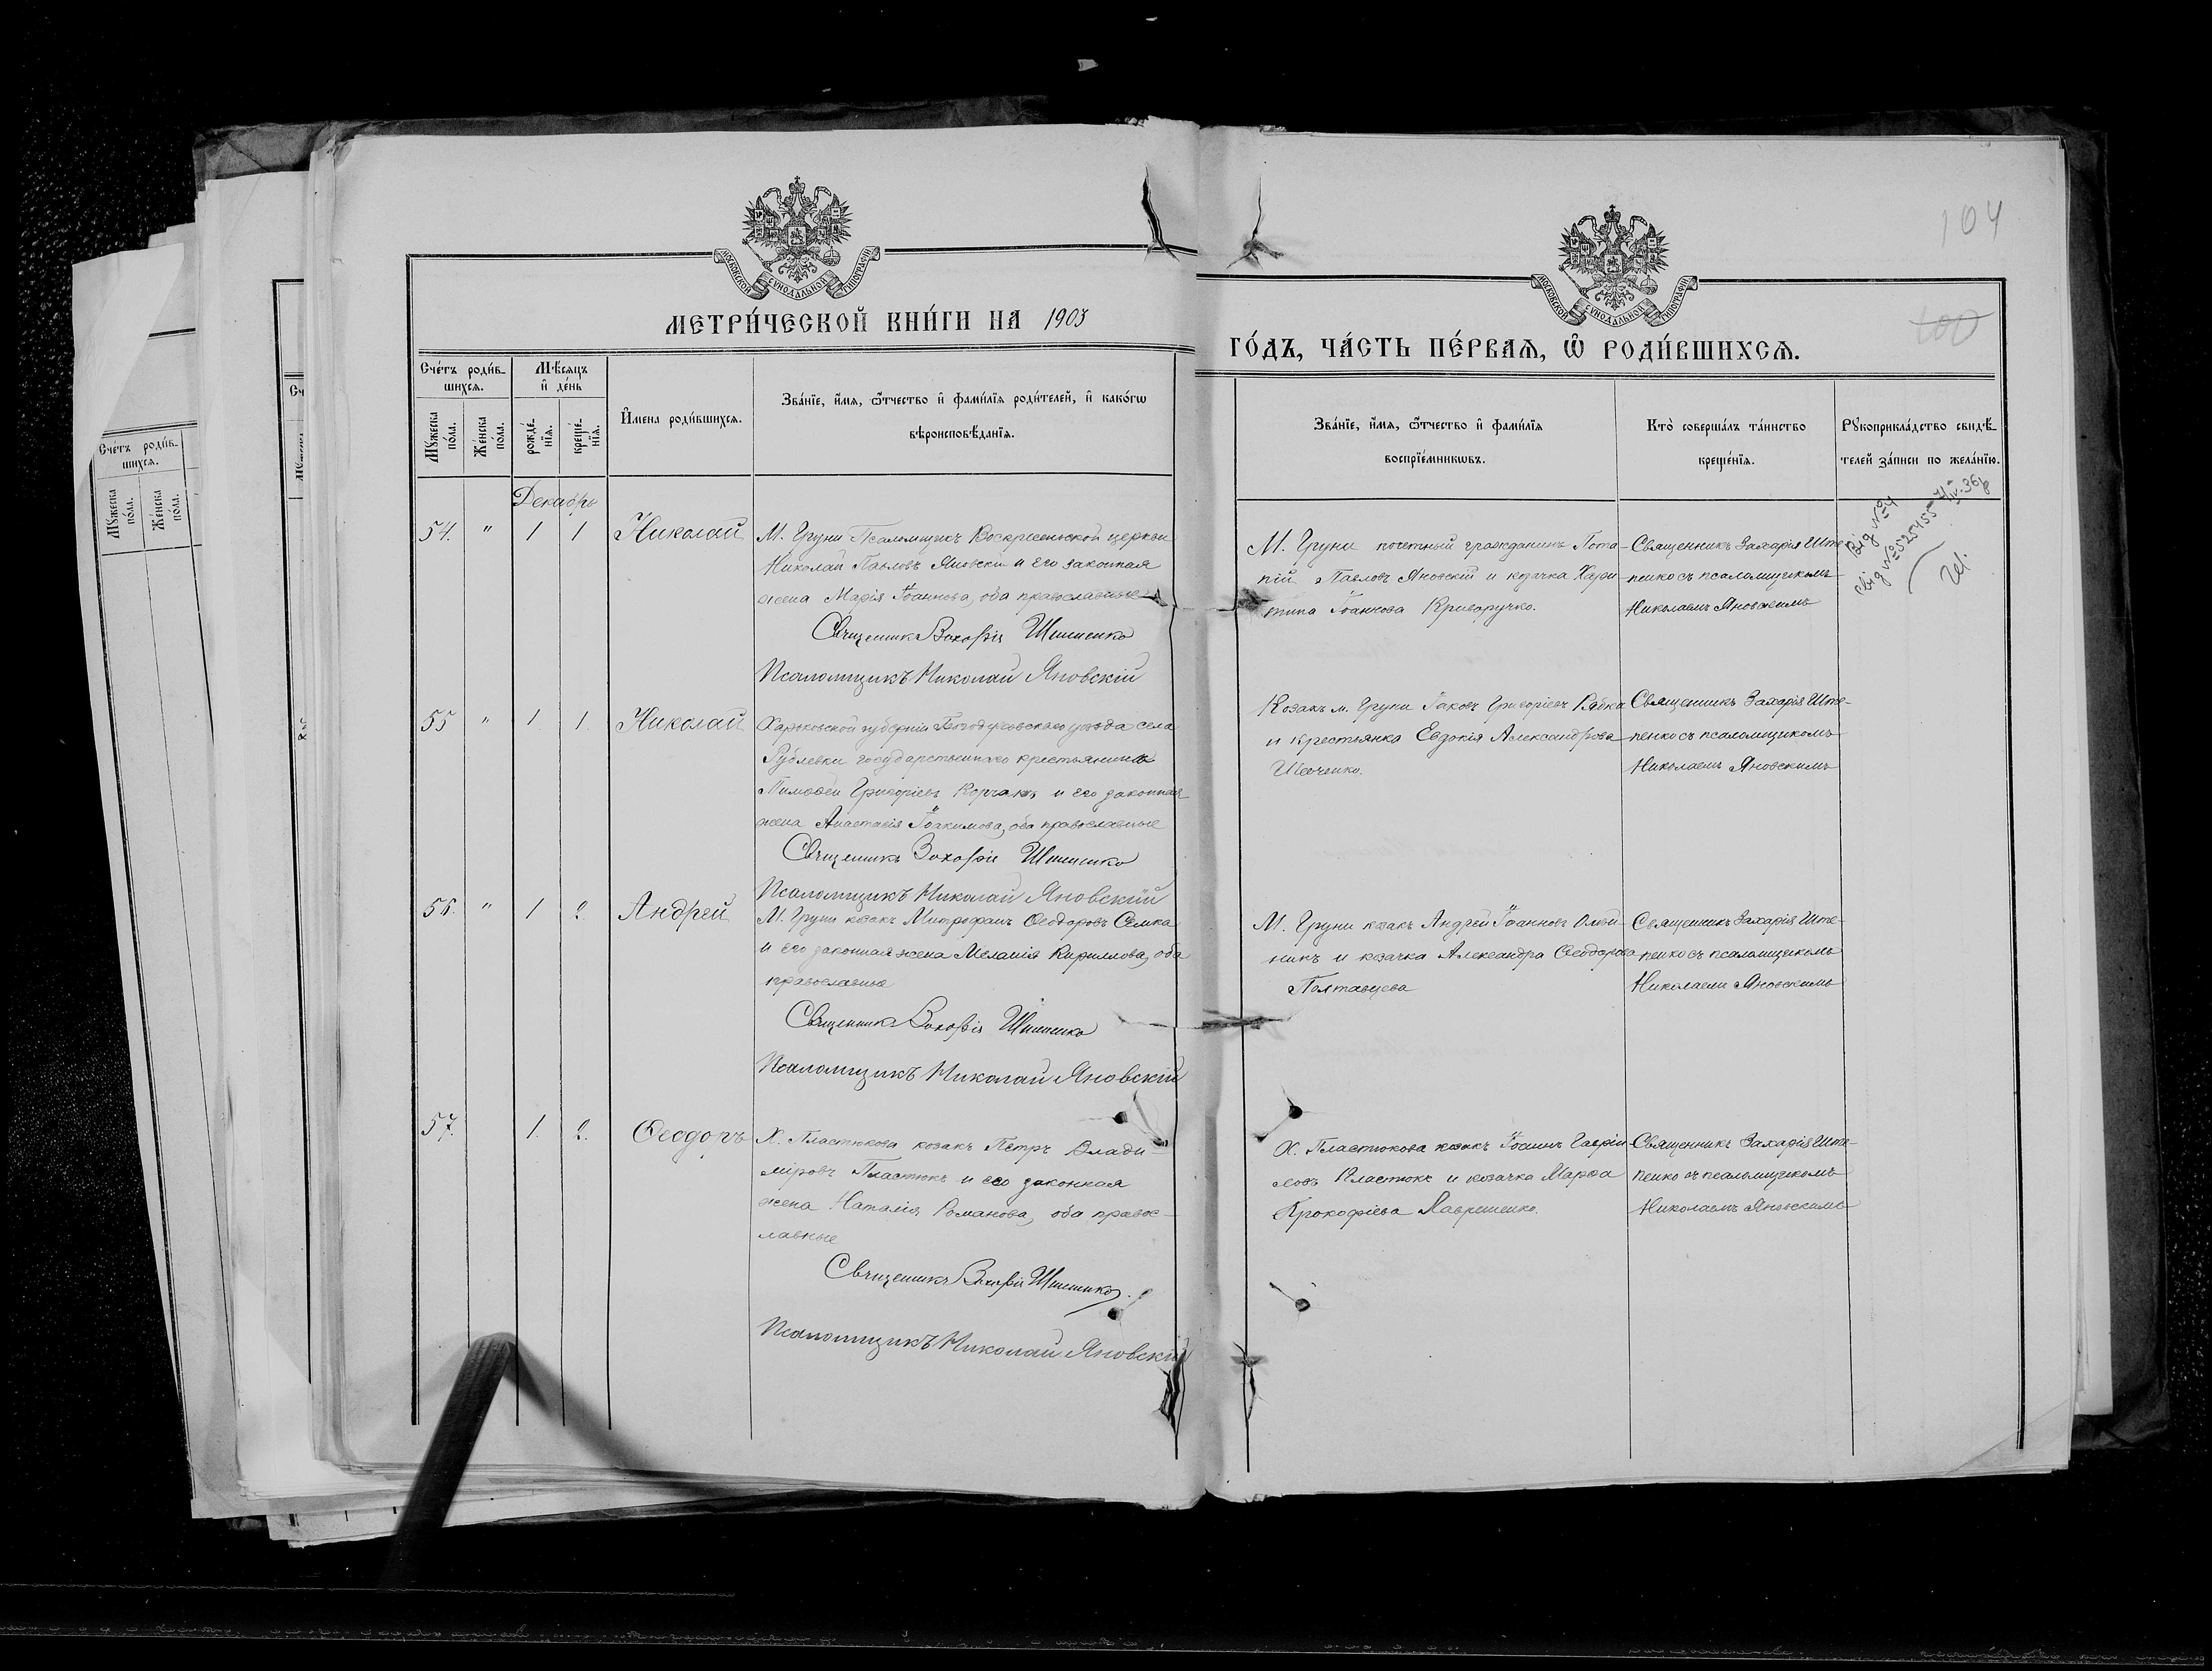 104
100
МОСКОВСКОЙ СѴНОДАЛЬНОЙ ТИПОГРАФІИ
МОСКОВСКОЙ СѴНОДАЛЬНОЙ ТИПОГРАФІИ
МЕТРИ́ЧЕСКОЙ КНИ́ГИ НА 1903
ГО́ДЪ, ЧА́СТЬ ПЕ́РВАѦ, Ѡ҆ РОДИ́ВШИХСѦ.
Сче́тъ роди́в-
шихсѧ.
Мѹ́жеска по́ла.
Же́нска по́ла.
Мѣ́сѧцъ и҆ де́нь
рожде́-
нїѧ.
креще́-
нїѧ.
И҆мена роди́вшихсѧ.
Зва́нїе, и҆́мѧ, ѻ҆́тчество и҆ фами́лїѧ роди́телей, и҆ како́гѡ
вѣроисповѣ́данїѧ.
Зва́нїе, и҆́мѧ, ѻ҆́тчество и҆ фами́лїѧ
воспрїе́мникѡвъ.
Кто̀ соверша́лъ та́инство
креще́нїѧ.
Рѹкоприкла́дство свидѣ́-
телей за́писи по жела́нїю.
Декабрь
54. " 1 1 Николай
М. Груни Псаломщикъ Воскресенской церкви
Николай Павловъ Яновскій и его законная
жена Марія Іоаннова, оба православные
Священникъ Захарія Штепенко
Псаломщикъ Николай Яновскій
М. Груни почетный гражданинъ Пота-
пій Павловъ Яновскій и козачка Хари-
тина Іоаннова Криворучко.
Священникъ Захарія Ште-
пенко съ псаломщикомъ
Николаемъ Яновскимъ
55 " 1 1 Николай
Харьковской губерніи Богодуховскаго уѣзда села
Рублевки государственнаго крестьянина
Тимофей Григоріевъ Корчакъ и его законная
жена Анастасія Іоакимова, оба православные
Священникъ Захарія Штепенко
Псаломщикъ Николай Яновскій
Козакъ м. Груни Іаковъ Григоріевъ Рябка
и крестьянка Евдокія Александрова
Шевченко.
Священникъ Захарія Ште-
пенко съ псаломщикомъ
Николаемъ Яновскимъ
56. " 1 2 Андрей
М. Груни козакъ Митрофанъ Ѳеодоровъ Семка
и его законная жена Меланія Кириллова, оба
православные
Священникъ Захарія Штепенко
Псаломщикъ Николай Яновскій
М. Груни козакъ Андрей Іоанновъ Олей-
никъ и козачка Александра Ѳеодорова
Полтавцева
Священникъ Захарія Ште-
пенко съ псаломщикомъ
Николаемъ Яновскимъ
57. 1. 2. Ѳеодоръ
Х. Пластюкова козакъ Петръ Влади-
міровъ Пластюкъ и его законная
жена Наталія Романова, оба право-
славные
Священникъ Захарія Штепенко.
Псаломщикъ Николай Яновскій
Х. Пластюкова козакъ Іоаннъ Гаврі-
ловъ Пластюкъ и козачка Марѳа
Прокофіева Лавриненко.
Священникъ Захарія Ште-
пенко съ псаломщикомъ
Николаемъ Яновскимъ